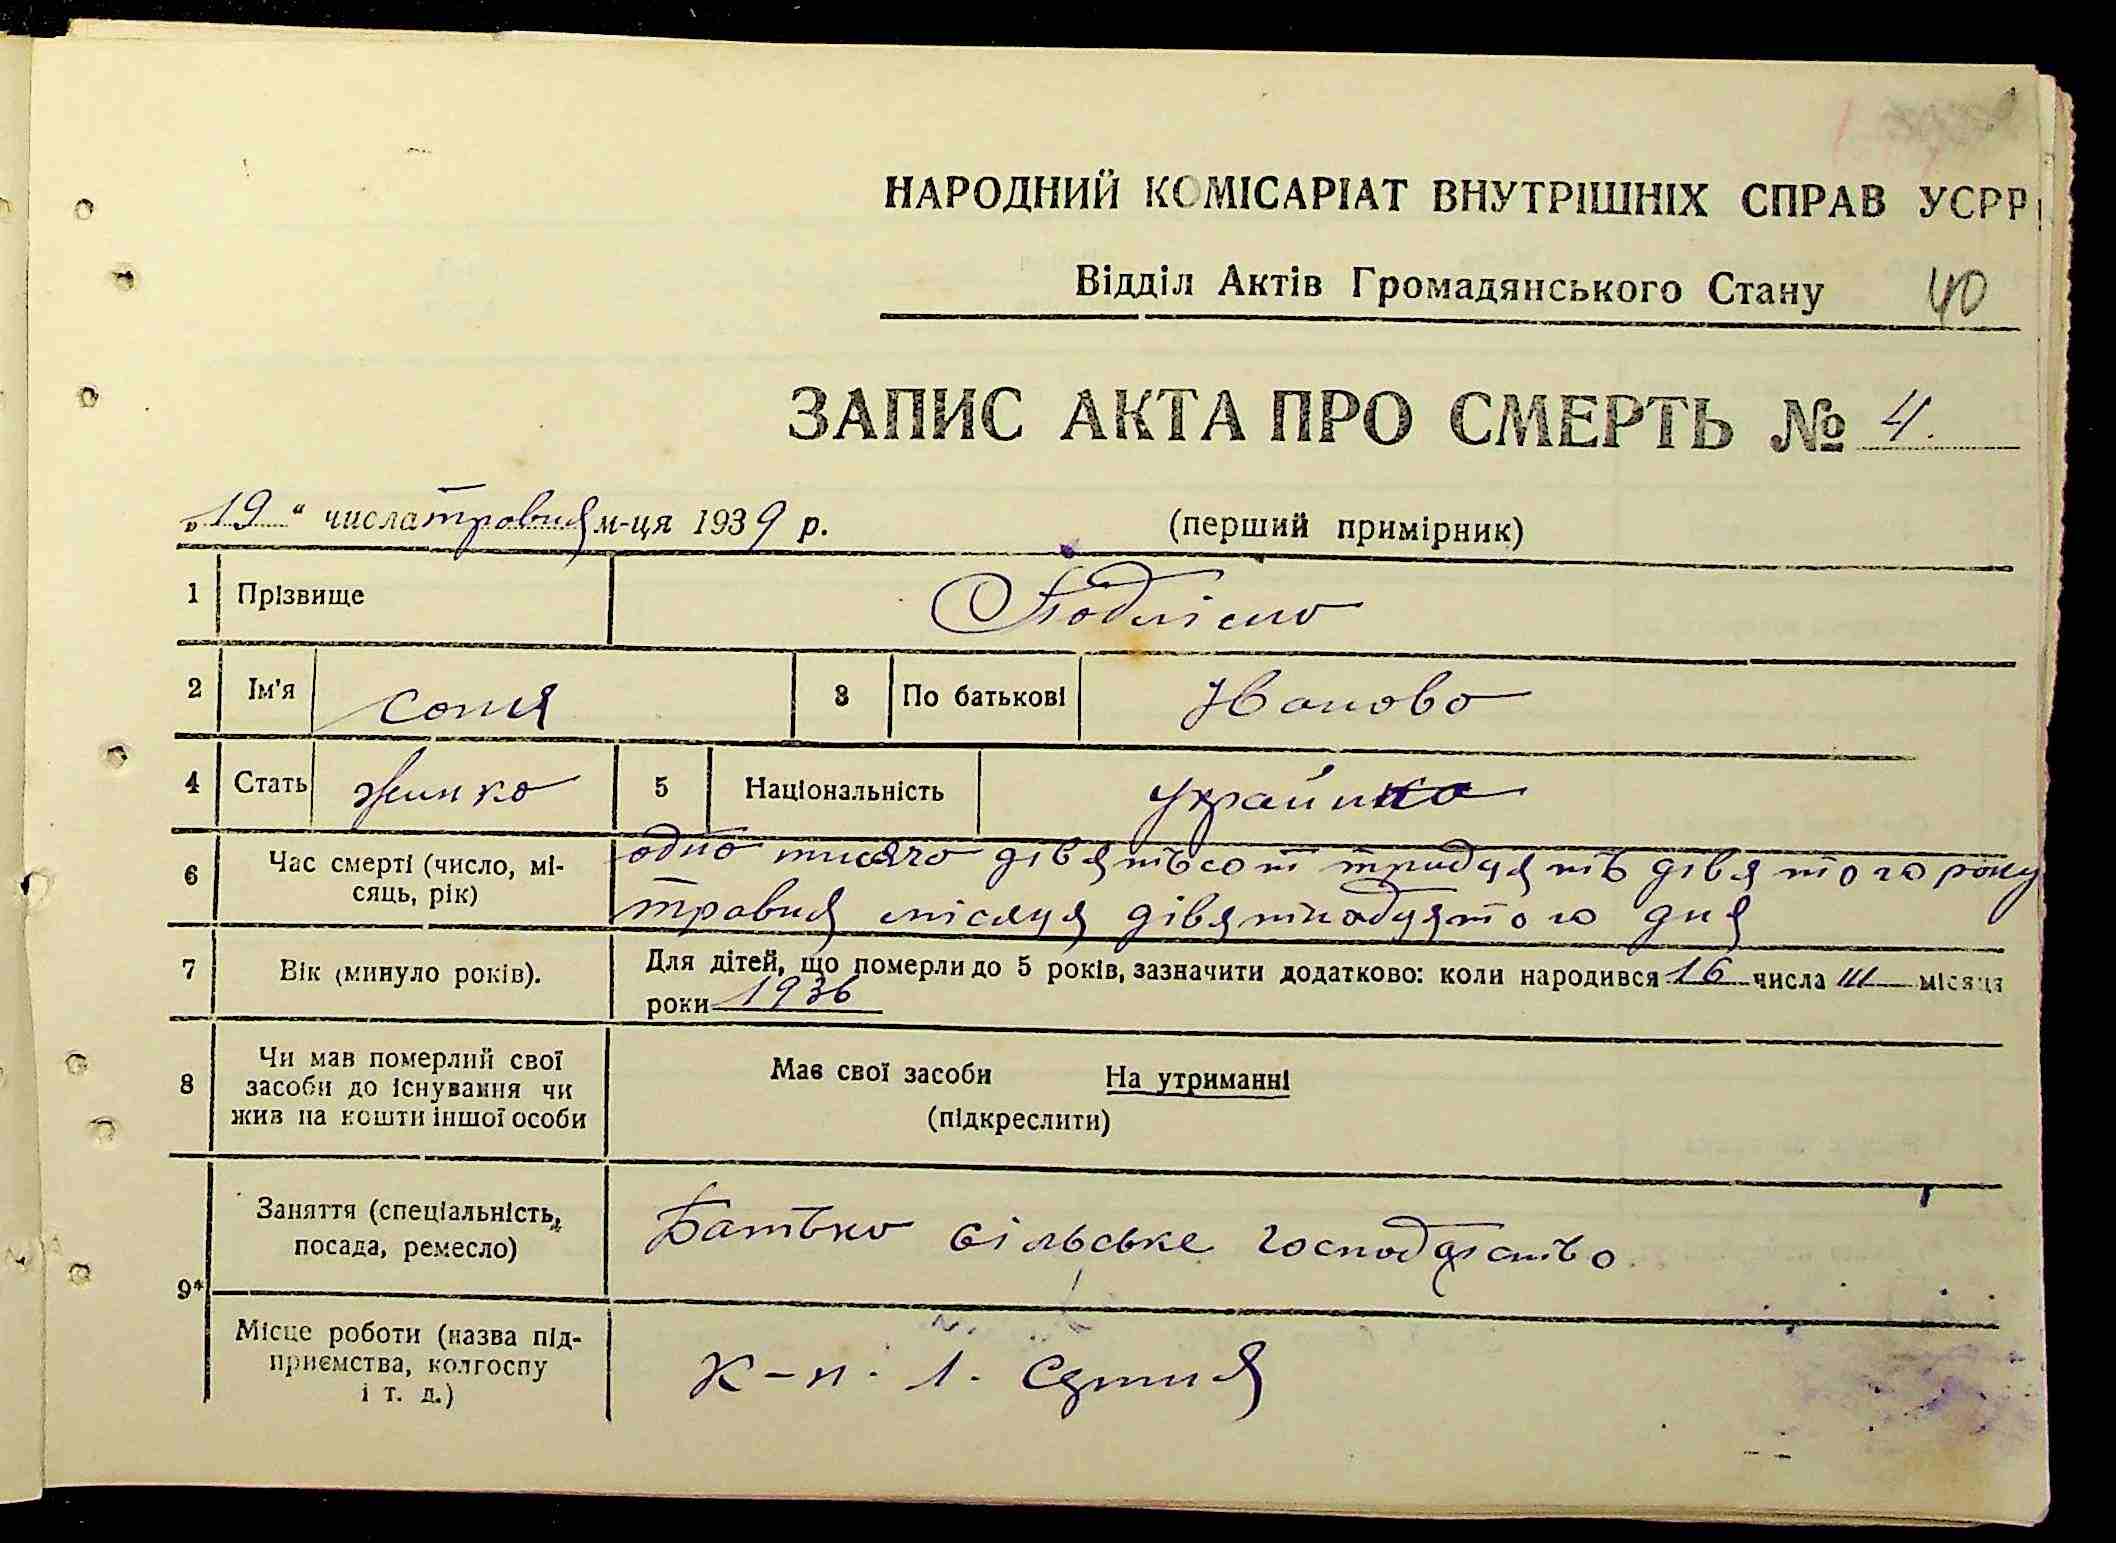 НАРОДНИЙ КОМІСАРІАТ ВНУТРІШНІХ СПРАВ УСРР
Відділ Актів Громадянського Стану 40
ЗАПИС АКТА ПРО СМЕРТЬ № 4.
„19“ числа травня м-ця 1939 р. (перший примірник)
1 Прізвище
2 Ім'я Соня 3 По батькові Іваново
4 Стать жинко 5 Національність украйнка
6 Час смерті (число, мі-
сяць, рік)
одно тисячо дівятьсот тридцять дівятого року
травня місяця дівятнадцятого дня
7 Вік (минуло років). Для дітей, що померли до 5 років, зазначити додатково: коли народився 16 числа III місяця
роки 1936
8 Чи мав померлий свої
засоби до існування чи
жив на кошти іншої особи
Має свої засоби На утриманні
(підкреслити)
9* Заняття (спеціальність,
посада, ремесло)
Батько сільське господарство
Місце роботи (назва під-
приємства, колгоспу
і т. д.)
к-п. 1. Серпня